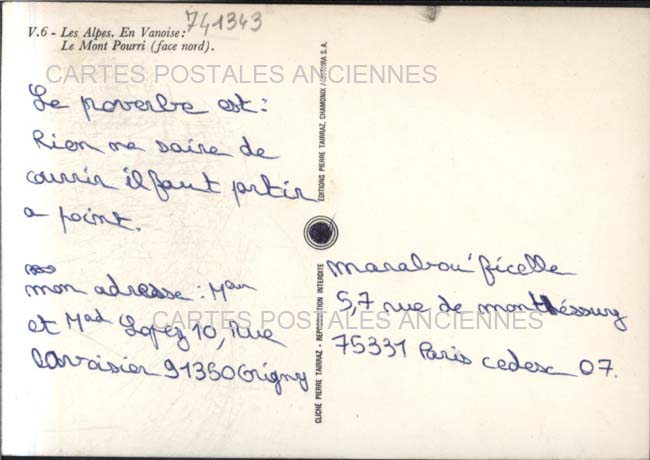 741343
V.6 - Les Alpes. En Vanoise:
Le Mont Pourri (face nord).
CARTES POSTALES ANCIENNES
Le poverbe est:
Rien ne saire de
courrir il faut partir
a point.
mon adresse: Mau
et Mad Lopez 10, Rue
Lavoisier 91350 Grigny
EDITIONS PIERRE TAIRRAZ, CHAMONIX
CLICHÉ PIERRE TAIRRAZ - REPRODUCTION INTERDITE
marabou' ficelle
5,7 rue de
CARTES POSTALES ANCIENNES
75331 Paris cedex 07.